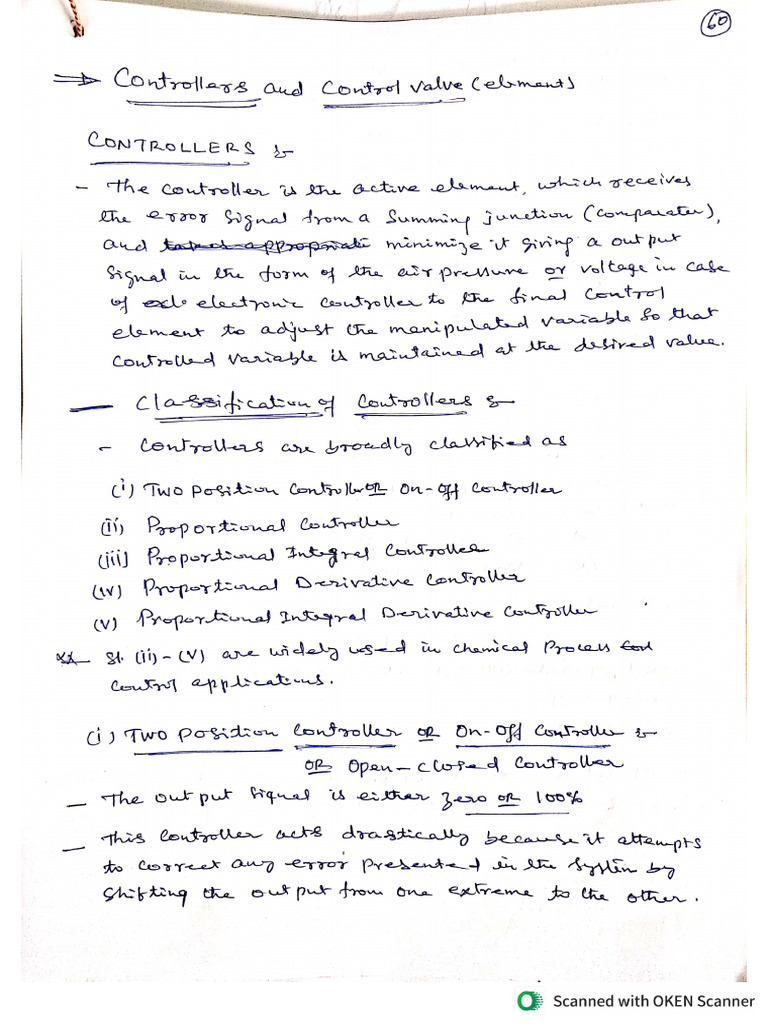 60
⇒ Controllers and Control valve (element)
CONTROLLERS :-
- The controller is the active element, which receives
the error signal from a summing junction (comparater),
and taken appropriate minimize it giving a output
signal in the form of the air pressure or voltage in case
of ele electronic controller to the final control
element to adjust the manipulated variable so that
controlled variable is maintained at the desired value.
— Classification of Controllers :-
- Controllers are broadly classified as
(i) Two position controller OR On-Off controller
(ii) Proportional Controller
(iii) Proportional Integral Controller
(iv) Proportional Derivative Controller
(v) Proportional Integral Derivative Controller
St. (ii) - (v) are widely used in chemical Process
control applications.
(i) Two position controller OR On-Off Controller :-
OR Open-closed Controller
— The output signal is either zero OR 100%
— This controller acts drastically because it attempts
to correct any error presented in the system by
shifting the output from one extreme to the other.
Scanned with OKEN Scanner